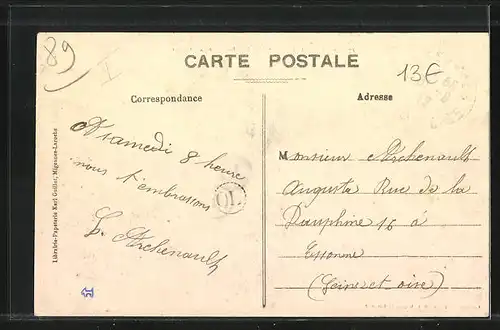 89
I
CARTE POSTALE
13€
Correspondance
Adresse
A samedi 8 heure
nous t'embrassons
L. Archenault
OL
Monsieur Archenault
Augusta Rue de la
Dauphine 16 à
Essonne
(Seine et oise)
Librairie-Papeterie Karl Guillot, Migennes-Laroche